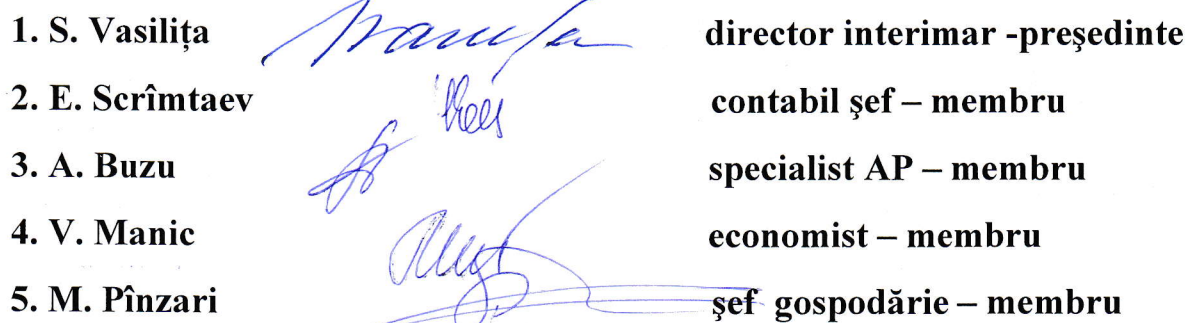 1. S. Vasilița director interimar -președinte
2. E. Scrîmtaev contabil șef – membru
3. A. Buzu specialist AP – membru
4. V. Manic economist – membru
5. M. Pînzari șef gospodărie – membru